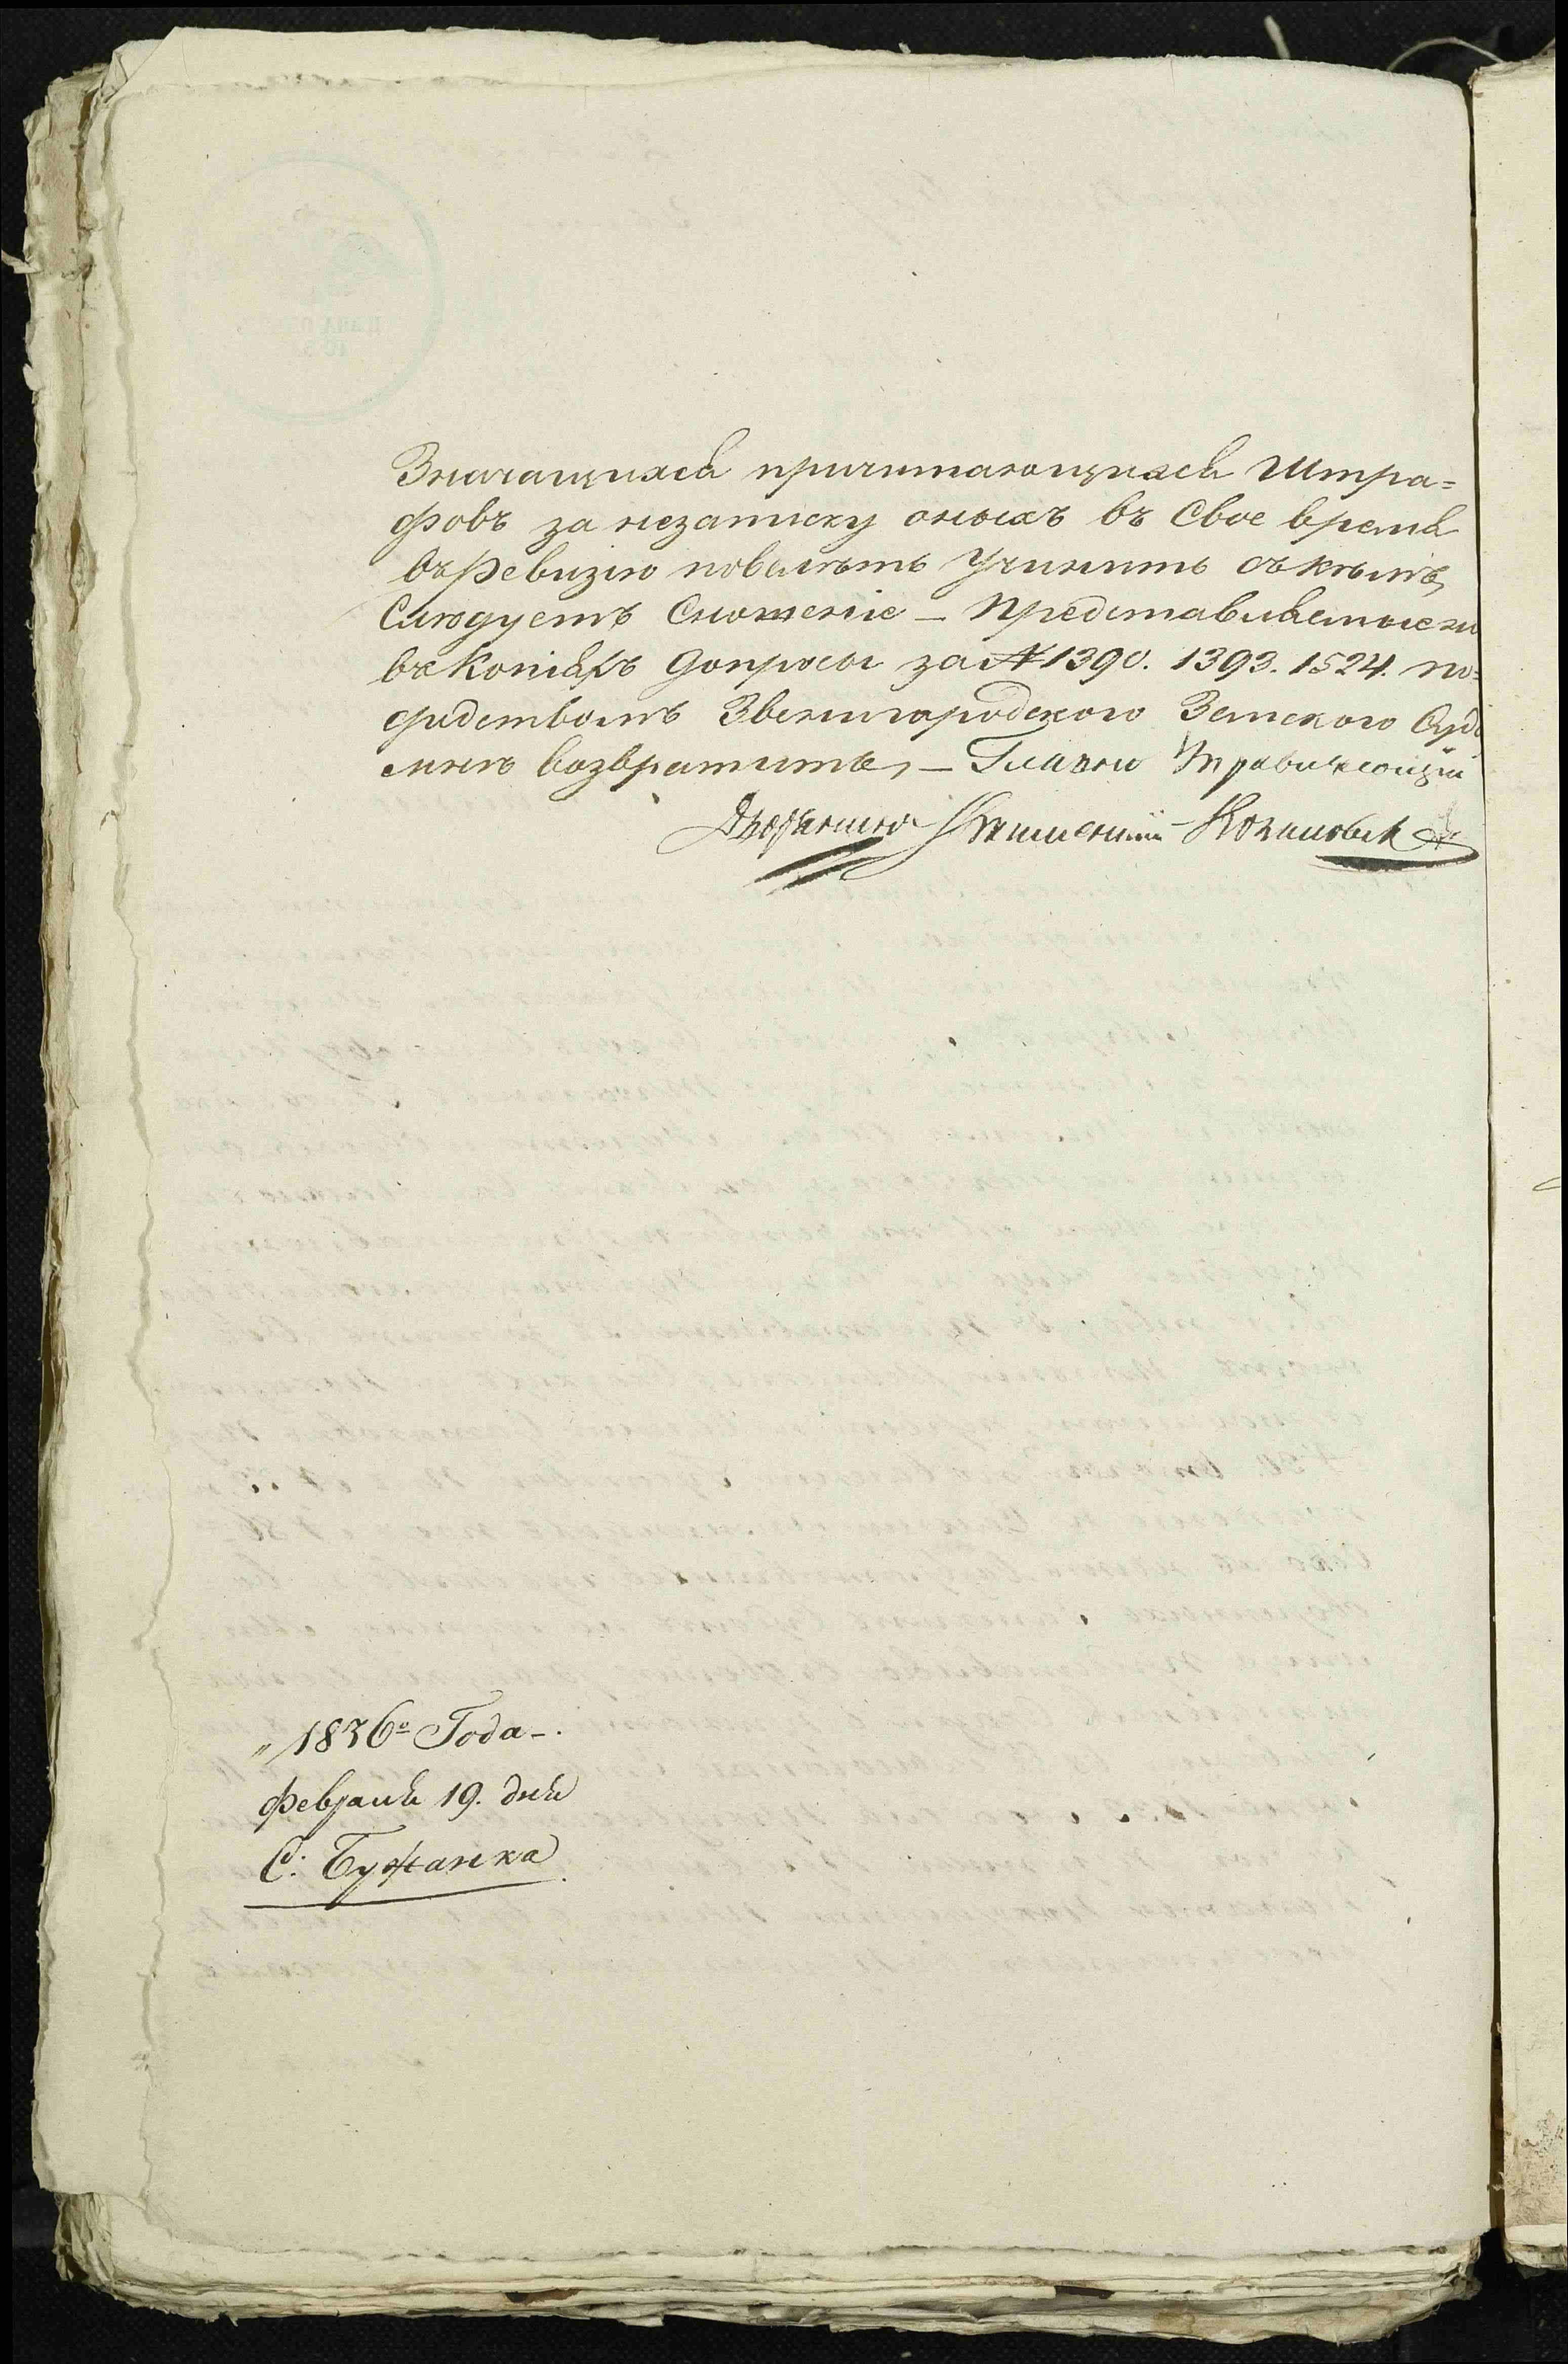 Значащихся причитающихся Штра=
фовъ за незаписку оныхъ въ Свое время
въ Ревизію повелѣть Учинить съ кѣмъ
Слѣдуетъ Сношеніе — Представляемые же
въ Копіяхъ допросы за № 1390. 1393. 1524. по=
средствомъ Звенигородского Земского Суда
мнѣ возвратить, — Главно Управляющій
Дворянинъ Козаковск
„ 1836го Года —.
Февраля 19. дня
С: Бужанка